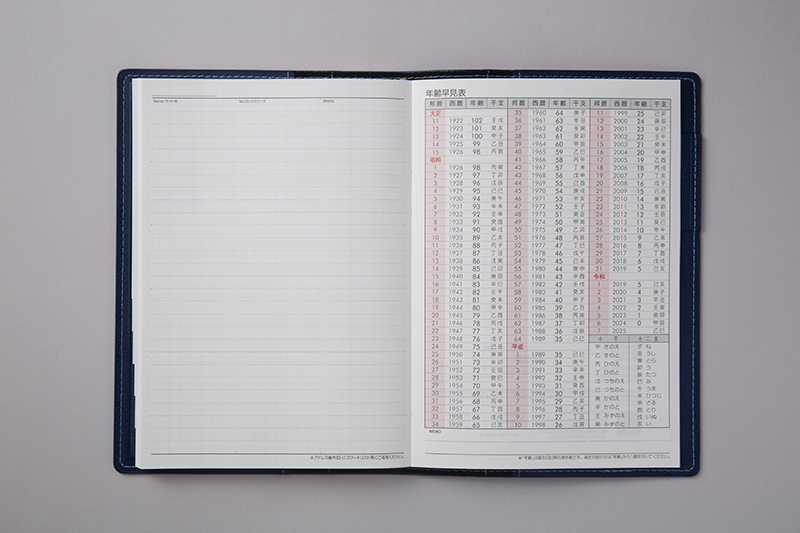 Name・サイト名 Tel・ID・パスワード Memo
※アドレス帳やID・パスワードリスト等にご活用ください。
年齢早見表
邦暦 西暦 年齢 干支 邦暦 西暦 年齢 干支 邦暦 西暦 年齢 干支
大正 35 1960 64 庚子 11 1999 25 己卯
11 1922 102 壬戌 36 1961 63 辛丑 12 2000 24 庚辰
12 1923 101 癸亥 37 1962 62 壬寅 13 2001 23 辛巳
13 1924 100 甲子 38 1963 61 癸卯 14 2002 22 壬午
14 1925 99 乙丑 39 1964 60 甲辰 15 2003 21 癸未
15 1926 98 丙寅 40 1965 59 乙巳 16 2004 20 甲申
昭和 41 1966 58 丙午 17 2005 19 乙酉
1 1926 98 丙寅 42 1967 57 丁未 18 2006 18 丙戌
2 1927 97 丁卯 43 1968 56 戊申 19 2007 17 丁亥
3 1928 96 戊辰 44 1969 55 己酉 20 2008 16 戊子
4 1929 95 己巳 45 1970 54 庚戌 21 2009 15 己丑
5 1930 94 庚午 46 1971 53 辛亥 22 2010 14 庚寅
6 1931 93 辛未 47 1972 52 壬子 23 2011 13 辛卯
7 1932 92 壬申 48 1973 51 癸丑 24 2012 12 壬辰
8 1933 91 癸酉 49 1974 50 甲寅 25 2013 11 癸巳
9 1934 90 甲戌 50 1975 49 乙卯 26 2014 10 甲午
10 1935 89 乙亥 51 1976 48 丙辰 27 2015 9 乙未
11 1936 88 丙子 52 1977 47 丁巳 28 2016 8 丙申
12 1937 87 丁丑 53 1978 46 戊午 29 2017 7 丁酉
13 1938 86 戊寅 54 1979 45 己未 30 2018 6 戊戌
14 1939 85 己卯 55 1980 44 庚申 31 2019 5 己亥
15 1940 84 庚辰 56 1981 43 辛酉 令和
16 1941 83 辛巳 57 1982 42 壬戌 1 2019 5 己亥
17 1942 82 壬午 58 1983 41 癸亥 2 2020 4 庚子
18 1943 81 癸未 59 1984 40 甲子 3 2021 3 辛丑
19 1944 80 甲申 60 1985 39 乙丑 4 2022 2 壬寅
20 1945 79 乙酉 61 1986 38 丙寅 5 2023 1 癸卯
21 1946 78 丙戌 62 1987 37 丁卯 6 2024 0 甲辰
22 1947 77 丁亥 63 1988 36 戊辰 7 2025 乙巳
23 1948 76 戊子 64 1989 35 己巳 十干 十二支
24 1949 75 己丑 平成 甲 きのえ 子 ね
25 1950 74 庚寅 1 1989 35 己巳 乙 きのと 丑 うし
26 1951 73 辛卯 2 1990 34 庚午 丙 ひのえ 寅 とら
27 1952 72 壬辰 3 1991 33 辛未 丁 ひのと 卯 う
28 1953 71 癸巳 4 1992 32 壬申 戊 つちのえ 辰 たつ
29 1954 70 甲午 5 1993 31 癸酉 己 つちのと 巳 み
30 1955 69 乙未 6 1994 30 甲戌 庚 かのえ 午 うま
31 1956 68 丙申 7 1995 29 乙亥 辛 かのと 未 ひつじ
32 1957 67 丁酉 8 1996 28 丙子 壬 みずのえ 申 さる
33 1958 66 戊戌 9 1997 27 丁丑 癸 みずのと 酉 とり
34 1959 65 己亥 10 1998 26 戊寅 戌 いぬ
亥 い
MEMO
※「年齢」は誕生日以降の満年齢です。誕生日前の方は「年齢」から1歳を引いてください。